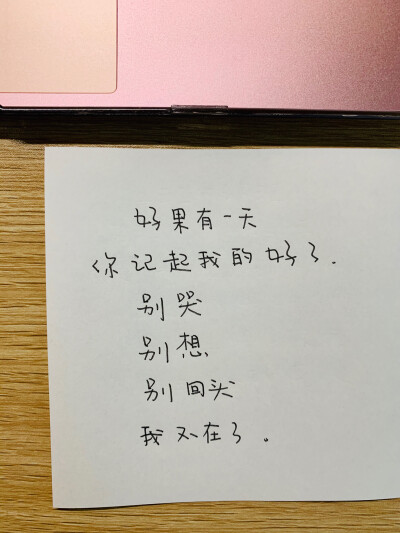 好果有一天
你记起我的好了.
别哭
别想
别回头
我不在了。